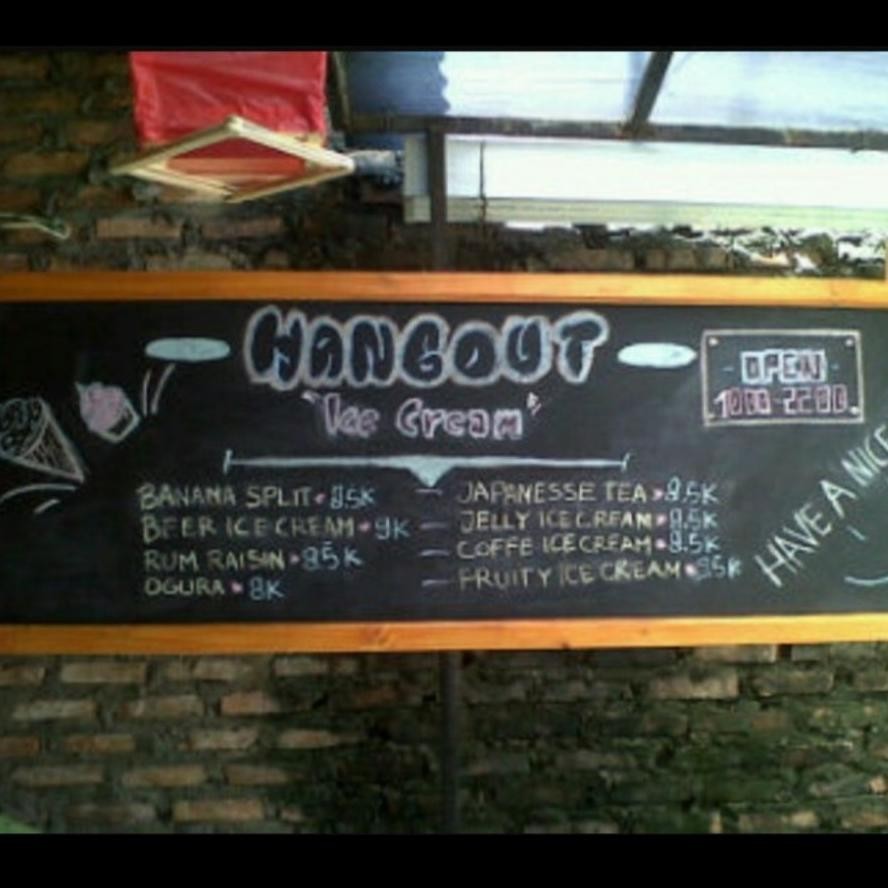 HANGOUT
"Ice Cream"
OPEN
1000-2200
BANANA SPLIT • 8.5K
BEER ICE CREAM • 9K
RUM RAISIN • 8.5K
OGURA • 8K
JAPANESSE TEA • 8.5K
JELLY ICE CREAM • 8.5K
COFFE ICE CREAM • 8.5K
FRUITY ICE CREAM
HAVE A NICE